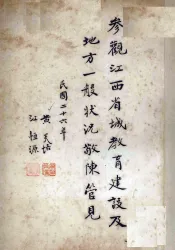 參觀江西省城教育建設及
地方一般狀況敬陳管見
民國二十六年
黃炎培
江恒源